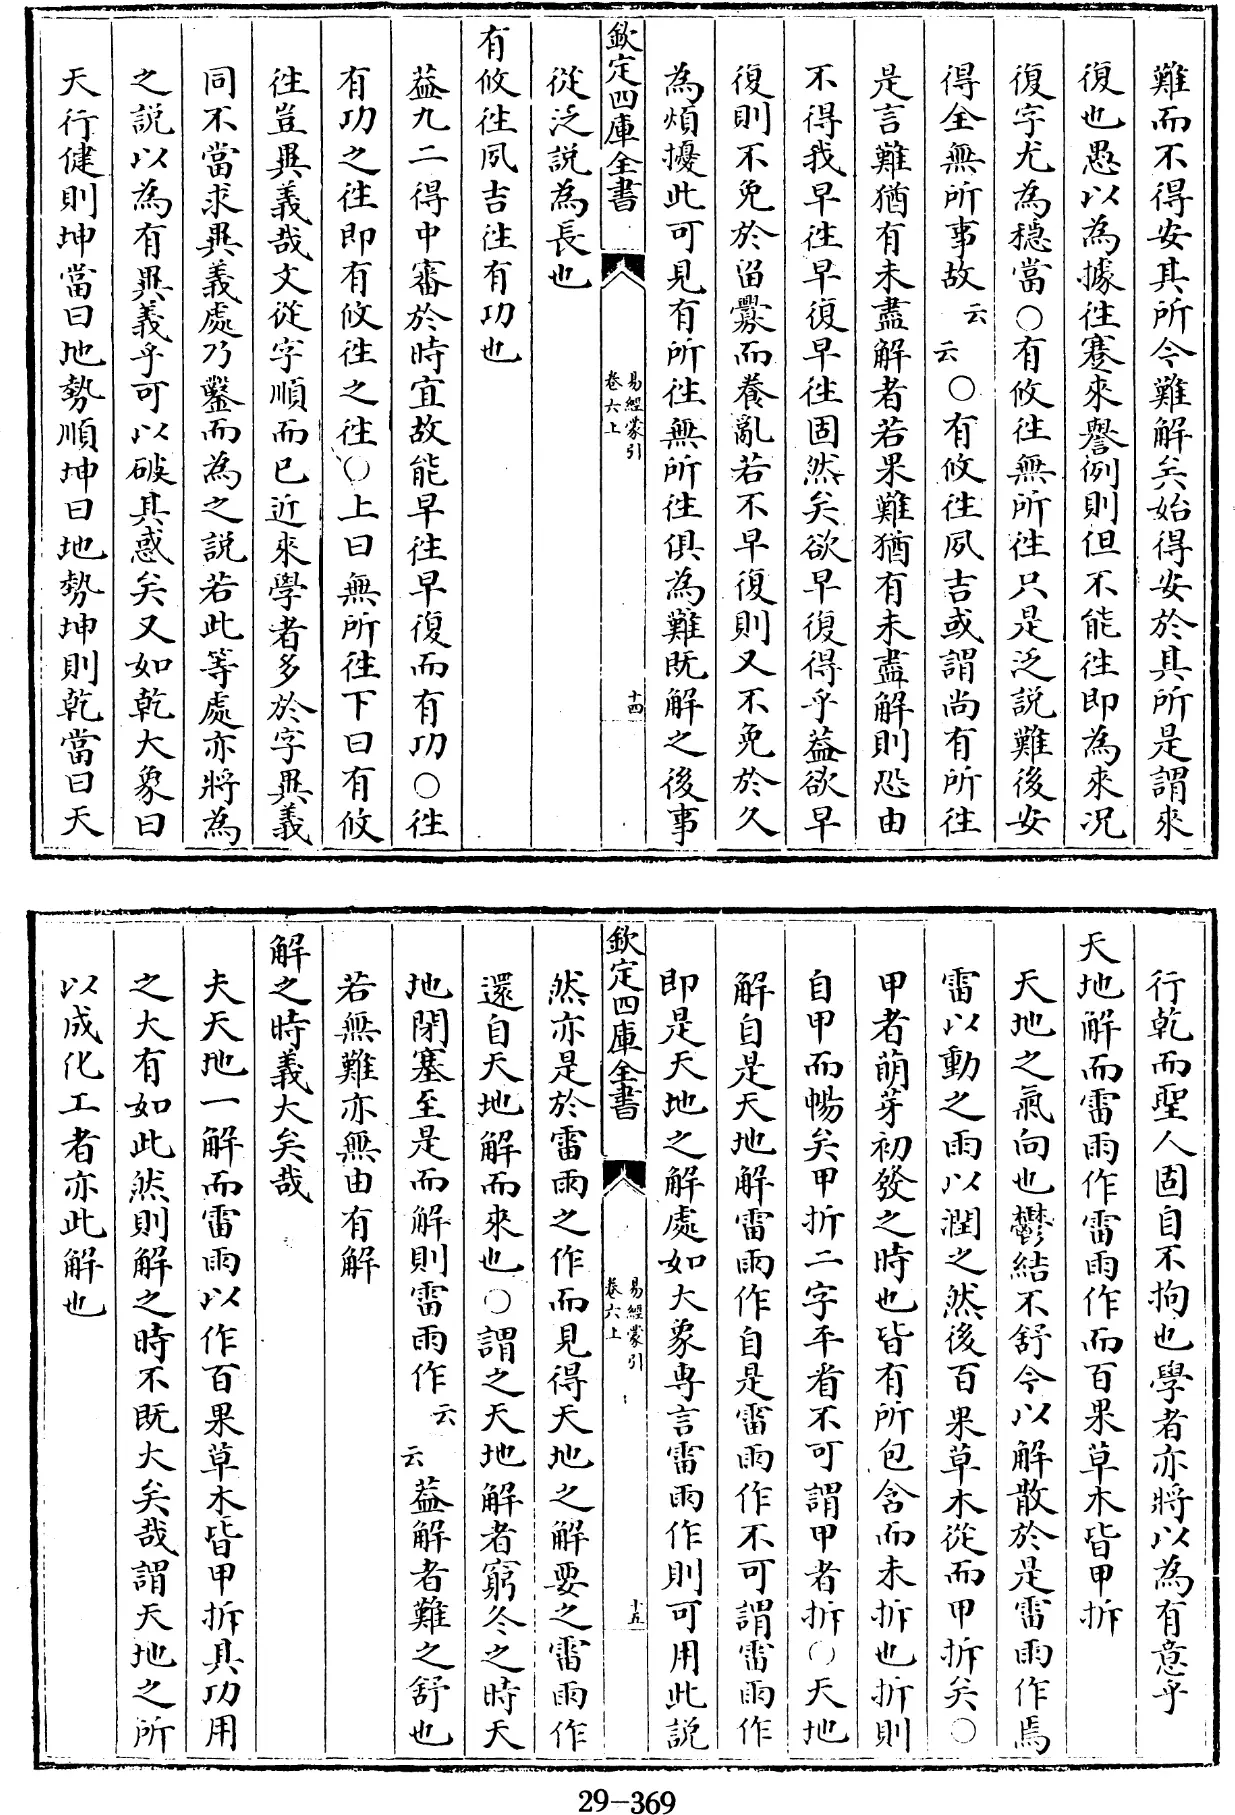 難而不得安其所今難解矣始得安於其所是謂來
復也愚以為據徃蹇來譽例則但不能徃即為來况
復字尤為穩當○有攸徃無所徃只是泛説難後安
得全無所事故云云○有攸徃夙吉或謂尚有所徃
是言難猶有未盡解者若果難猶有未盡解則恐由
不得我早徃早復早徃固然矣欲早復得乎葢欲早
復則不免於留釁而養亂若不早復則又不免於久
為煩擾此可見有所徃無所徃俱為難既解之後事
欽定四庫全書
易經蒙引
卷六上
十四
從泛説為長也
有攸徃夙吉徃有功也
葢九二得中審於時宜故能早徃早復而有功○徃
有功之徃即有攸徃之徃○上曰無所徃下曰有攸
徃豈異義哉文從字順而已近來學者多於字異義
同不當求異義處乃鑿而為之説若此等處亦將為
之説以為有異義乎可以破其惑矣又如乾大象曰
天行健則坤當曰地勢順坤曰地勢坤則乾當曰天
行乾而聖人固自不拘也學者亦將以為有意乎
天地解而雷雨作雷雨作而百果草木皆甲拆
天地之氣向也鬱結不舒今以解散於是雷雨作焉
雷以動之雨以潤之然後百果草木從而甲拆矣○
甲者萌芽初發之時也皆有所包含而未拆也拆則
自甲而暢矣甲拆二字平看不可謂甲者拆○天地
解自是天地解雷雨作自是雷雨作不可謂雷雨作
即是天地之解處如大象専言雷雨作則可用此説
欽定四庫全書
易經蒙引
卷六上
十五
然亦是於雷雨之作而見得天地之解要之雷雨作
還自天地解而來也○謂之天地解者窮冬之時天
地閉塞至是而解則雷雨作云云葢解者難之舒也
若無難亦無由有解
解之時義大矣哉
夫天地一解而雷雨以作百果草木皆甲拆其功用
之大有如此然則解之時不既大矣哉謂天地之所
以成化工者亦此解也
29-369